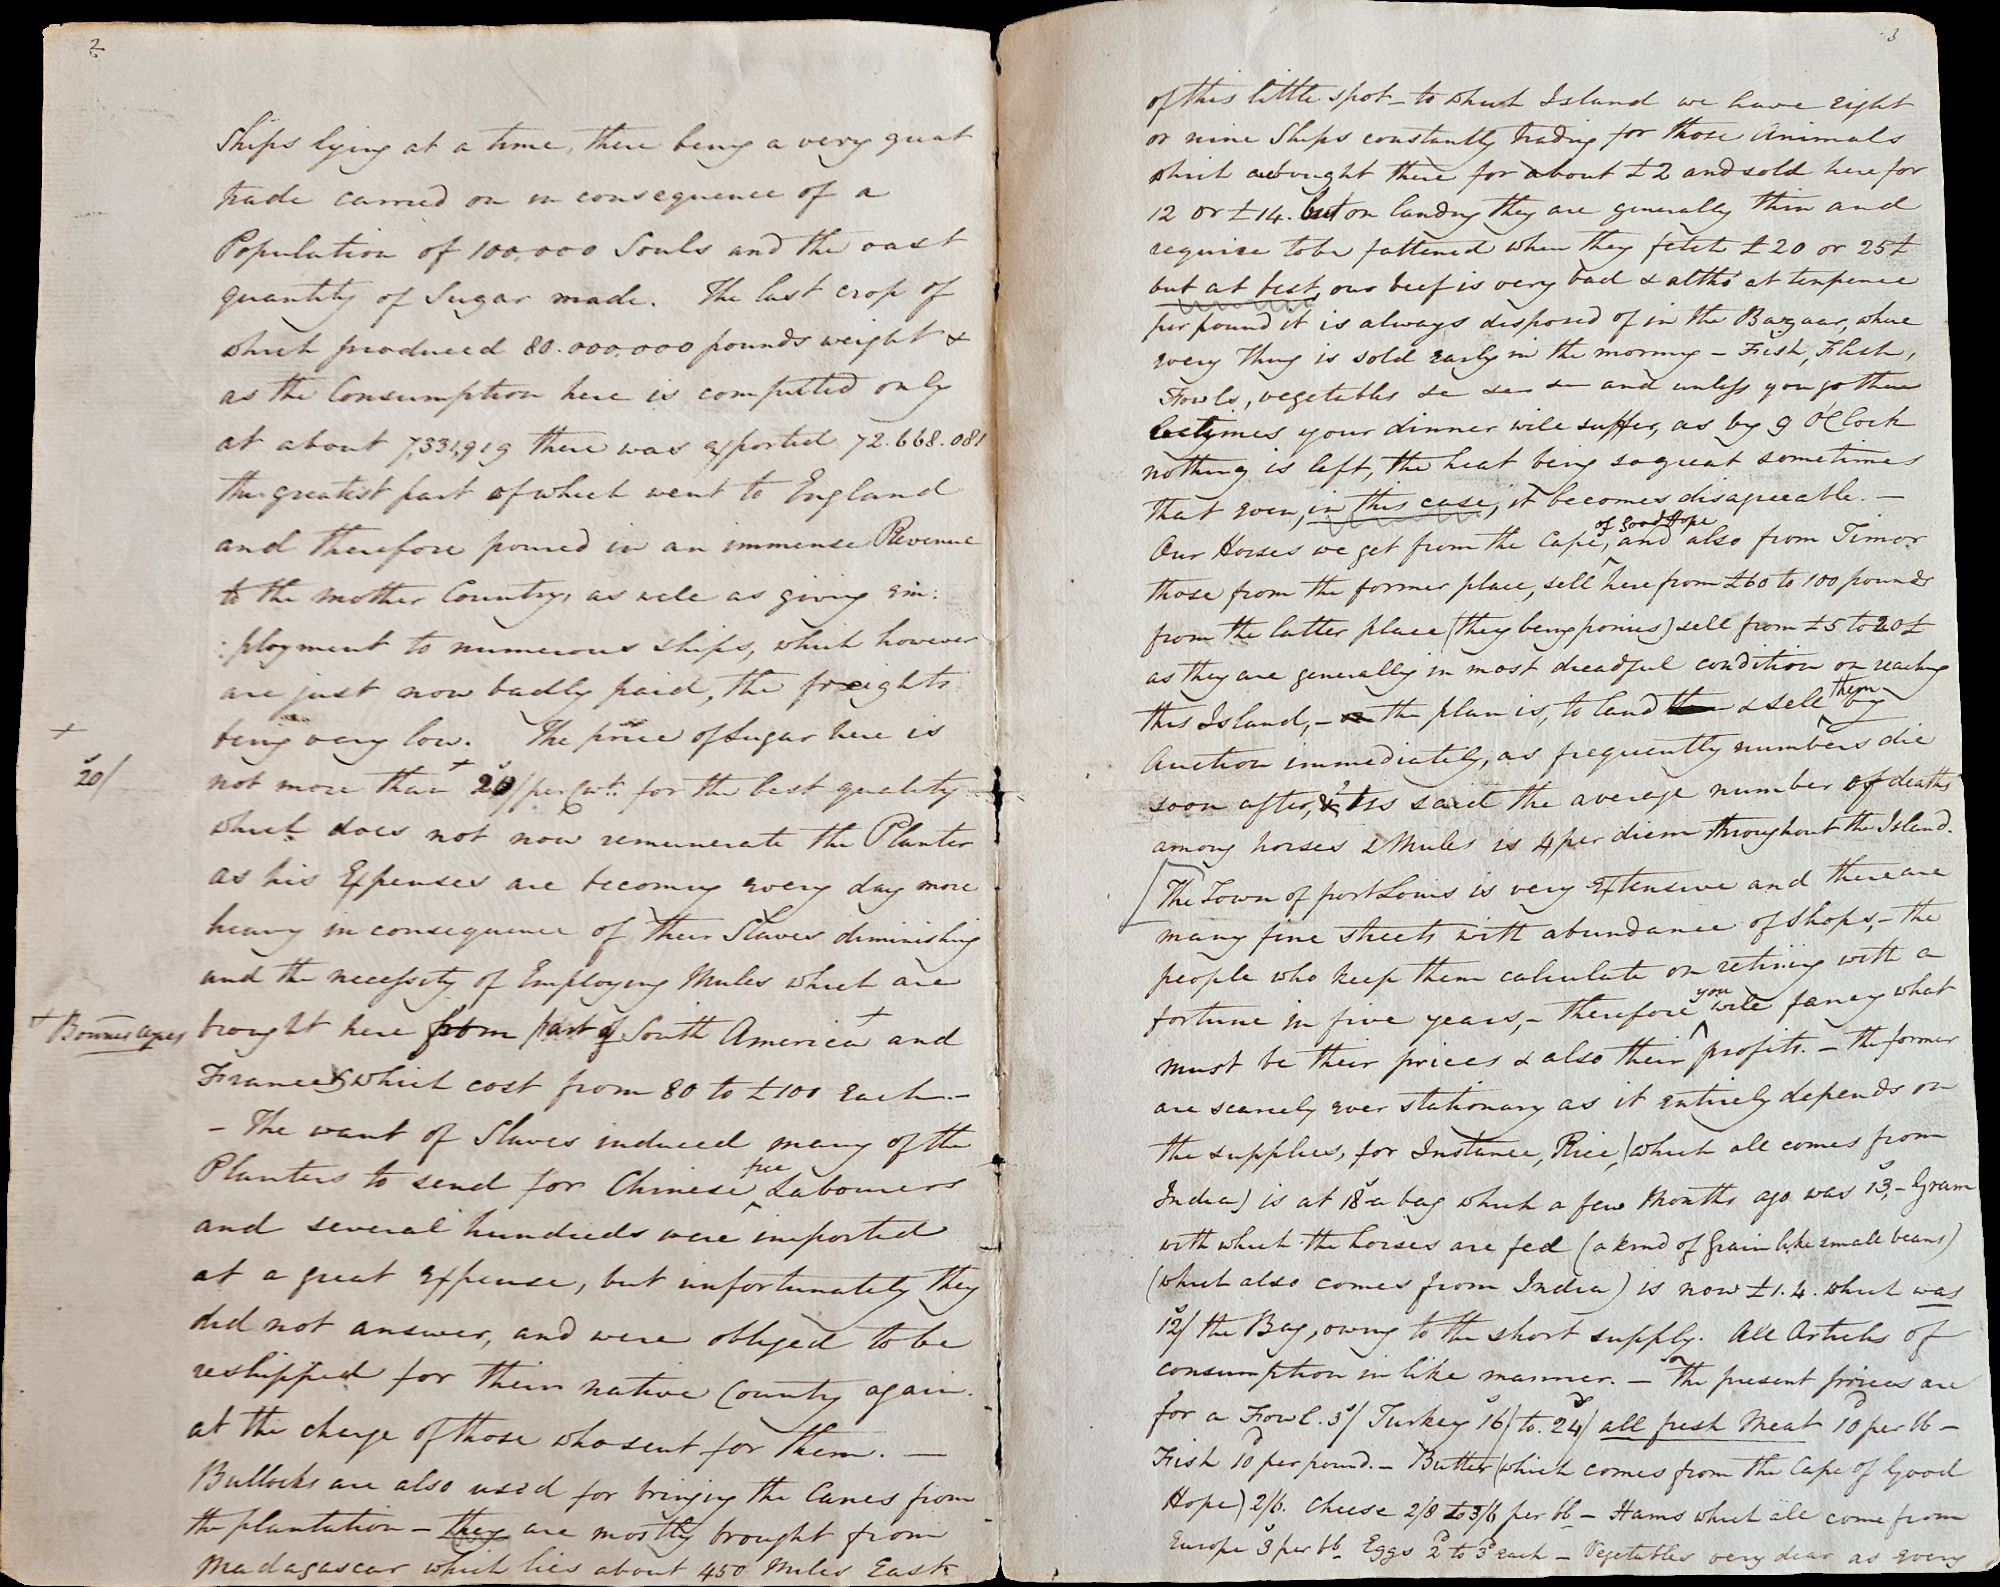 2
Ships lying at a time, there being a very great
trade carried on in consequence of a
Population of 100,000 Souls and the vast
quantity of Sugar made. The last crop of
which produced 80.000.000 pounds weight &
as the Consumption here is computed only
at about 7,331,919 there was exported 72.668.081
the greatest part of which went to England
and therefore poured in an immense Revenue
to the mother Country, as well as giving em:
:ployment to numerous ships, which however
are just now badly paid, the freights
being very low. The price of Sugar here is
+
20/
not more than + 20/ per Cwt. for the best quality
which does not now remunerate the Planter
as his Expenses are becoming every day more
heavy in consequence of their Slaves diminishing
and the necessity of Employing Mules which are
+ Bonnes ayres
brought here from part of South America + and
France which cost from 80 to £100 each.-
- The want of Slaves induced many of the
Planters to send for Chinese free Labourers
and several hundreds were imported
at a great expense, but unfortunately they
did not answer, and were obliged to be
reshipped for their native County again.
at the charge of those who sent for them. —
Bullocks are also used for bringing the Canes from
the plantation - they are mostly brought from
Madagascar which lies about 450 Miles East
3
of this little spot - to which Island we have eight
or nine Ships constantly trading for those Animals
which are bought there for about £2 and sold here for
12 or £14. but on landing they are generally thin and
require to be fattened when they fetch £20 or 25£
but at best, our beef is very bad & altho' at tenpence
per pound it is always disposed of in the Bazaar, where
every thing is sold early in the morning - Fish, Flesh,
Fowls, vegetables &c &c &c and unless you go there
betimes your dinner will suffer, as by 9 O'Clock
nothing is left, the heat being so great sometimes
that even, in this case, it becomes disagreeable. —
Our Horses we get from the Cape, of Good Hope and also from Timor
those from the former place, sell here from £60 to 100 pounds
from the latter place (they being ponies) sell from £5 to 20£
as they are generally in most dreadful condition on reaching
this Island, - the plan is, to land & sell them by
Auction immediately, as frequently numbers die
soon after, & 'tis said the average number of deaths
among horses & Mules is 4 per diem throughout the Island.
[The Town of port Louis is very extensive and there are
many fine streets with abundance of shops, - the
people who keep them calculate on retiring with a
fortune in five years, - therefore you will fancy what
must be their prices & also their profits. - the former
are scarcely ever stationary as it entirely depends on
the supplies, for Instance, Rice, (which all comes from
India) is at 18s a bag which a few Months ago was 13s, - Gram
with which the horses are fed (a kind of Grain like small beans)
(which also comes from India) is now £1.4. which was
12s/ the Bag, owing to the short supply. All Articles of
consumption in like manner. - The present prices are
for a Fowl. 3s/ Turkey 16s/ to 24s/ all fresh Meat 10d per lb -
Fish 10d per pound. - Butter (which comes from the Cape of Good
Hope) 2/6. Cheese 2/8 to 3/6 per lb - Hams which all come from
Europe 3s per lb Eggs 2d to 3d each - Vegetables very dear as every